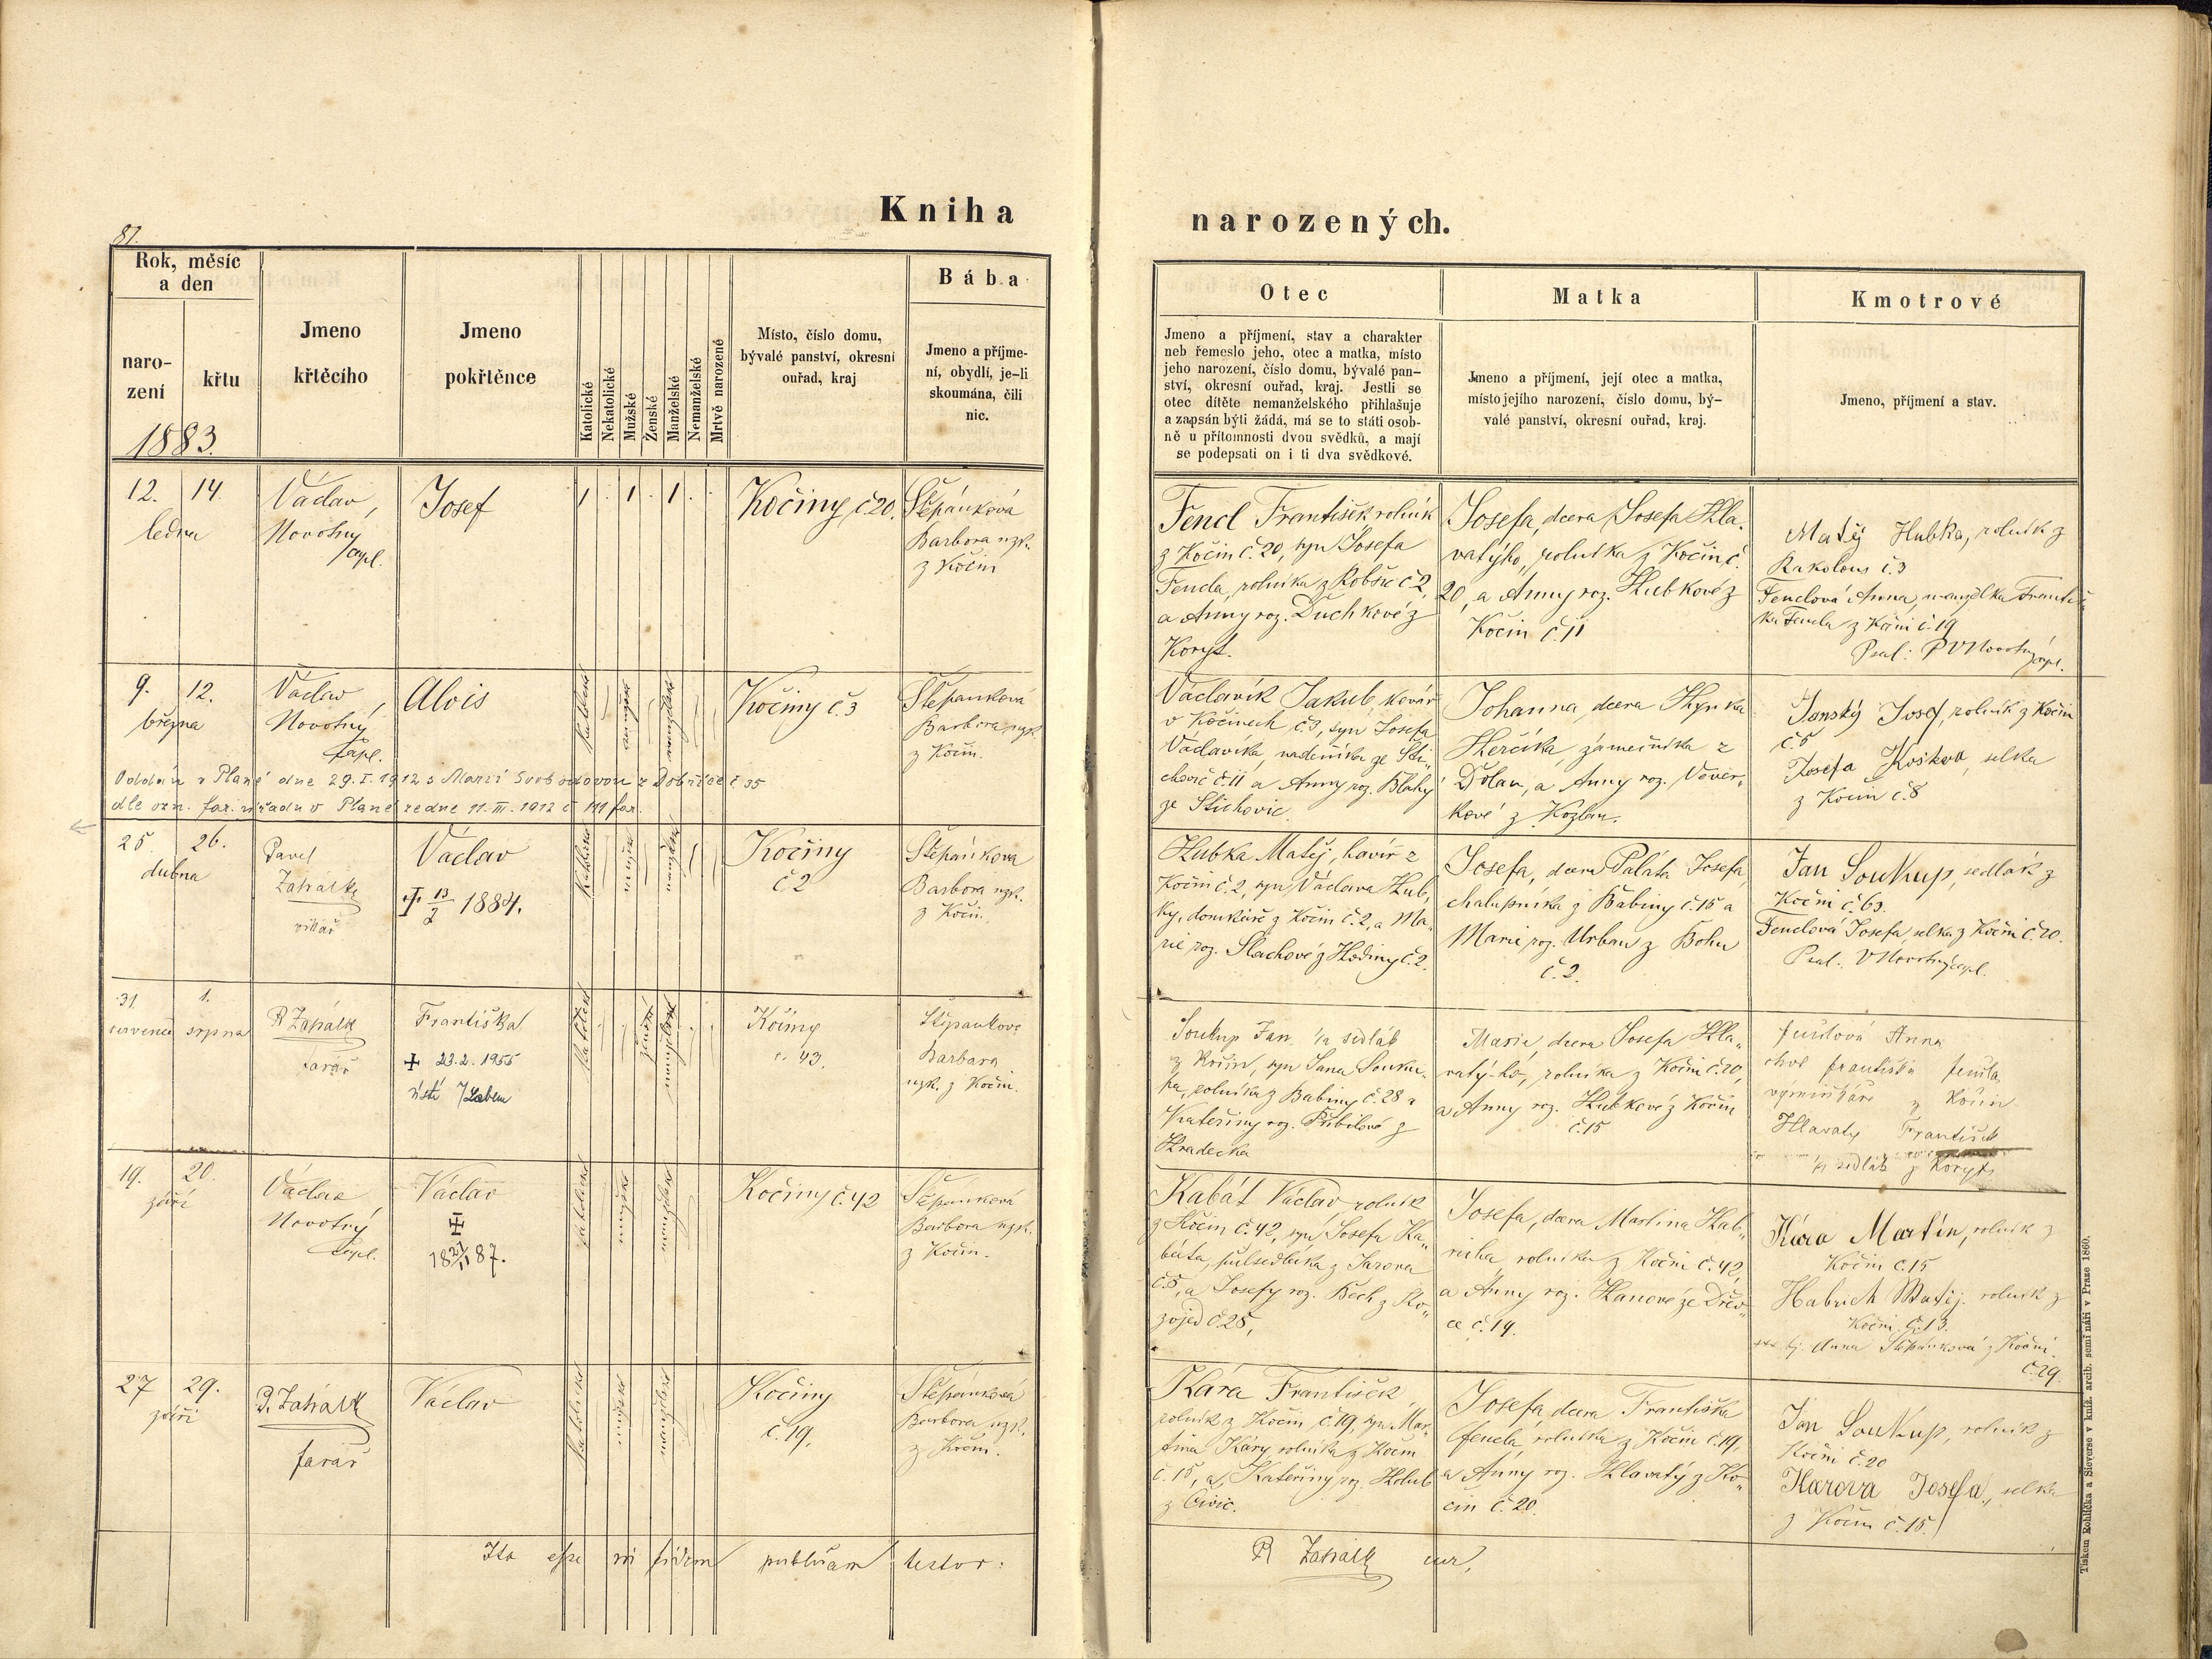 Kniha
narozených.
87.
Rok, měsíc
a den
naro-
zení
křtu
1883.
Jmeno
křtěcího
Jmeno
pokřtěnce
Katolické
Nekatolické
Mužské
Ženské
Manželské
Nemanželské
Mrtvě narozené
Místo, číslo domu,
bývalé panství, okresní
ouřad, kraj
Bába
Jmeno a příjme-
ní, obydlí, je-li
skoumána, čili
nic.
Otec
Jmeno a příjmení, stav a charakter
neb řemeslo jeho, otec a matka, místo
jeho narození, číslo domu, bývalé pan-
ství, okresní ouřad, kraj. Jestli se
otec dítěte nemanželského přihlašuje
a zapsán býti žádá, má se to státi osob-
ně u přítomnosti dvou svědků, a mají
se podepsati on i ti dva svědkové.
Matka
Jmeno a příjmení, její otec a matka,
místo jejího narození, číslo domu, bý-
valé panství, okresní ouřad, kraj.
Kmotrové
Jmeno, příjmení a stav.
12. 14.
ledna
Václav
Novotný
capl.
Josef
1 . 1 . 1 . .
Kočiny č 20.
Štěpánková
Barbora uzk.
z Kočin
Fencl František rolník
z Kočin č. 20, syn Josefa
Fencla, rolníka z Robšic č 2,
a Anny roz. Duchkové z
Koryt.
Josefa, dcera Josefa Hla-
vatýho, rolníka z Kočin č.
20, a Anny roz. Hubkové z
Kočin č. 11
Matěj Hubka, rolník z
Rakolous č. 3
Fenclová Anna, manželka Františ
ka Fencla z Kočin č. 19
Psal: P V Novotný capl.
9. 12.
března
Václav
Novotný
capl.
Alois
katolické
mužské
manželské
Kočiny č. 3
Štěpanková
Barbora uzk.
z Kočin.
Oddán v Plané dne 29. I. 1912 s Marií Svobodovou z Dobříče č. 35
dle ozn. far. úřadu v Plané ze dne 11. III. 1912 č 111 far.
Václavík Jakub, kovář
v Kočinech č. 3, syn Josefa
Václavíka, nadeníka ze Sti-
chovic č. 11 a Anny roz. Blahy
ze Stichovic.
Johanna, dcera Hynka
Herčíka, zámečníka z
Dolan, a Anny roz. Vever-
kové z Kozlan.
Janský Josef, rolník z Kočin
č. 5
Josefa Koskova, selka
z Kočin č. 8
25. 26.
dubna
Pavel
Zahálka
Václav
13/2 1884.
katolické
mužské
manželské
Kočiny
č 2
Štěpánkova
Barbora uzk.
z Kočin.
Hubka Matěj, havíř z
Kočin č. 2, syn Václava Hub-
ky, domkáře z Kočin č. 2, a Ma-
rie roz. Šlachové z Hodiny č. 2.
Josefa, dcera Paláta Josefa,
chalupníka z Babiny č. 15 a
Marie roz. Urban z Bohu
č. 2.
Jan Soukup, sedlák z
Kočin č. 63.
Fenclová Josefa, selka z Kočin č. 20.
Psal: V Novotný capl.
31. 1.
července srpna
P Zahálka
farář
Františka
+ 23. 2. 1955
Ústí /Labem
katolické
ženské
manželské
Kočiny
č. 43.
Štěpankova
Barbara
uzk. z Kočin.
Soukup Jan ¼ sedlák
z Kočin, syn Jana Souku-
pa, rolníka z Babiny č. 28 a
Kateřiny roz. Přibilové z
Hradecka
Marie, dcera Josefa Hla-
vatý-ho, rolníka z Kočin č. 20,
a Anny roz. Hubkové z Kočin
č. 15
Anna
choť Františka Fencla,
výminkáře z Kočin
Hlavatý František
sedlák z Koryt
19. 20.
září
Václav
Novotný
capl.
Václav
18 21/11 87.
katolické
mužské
manželské
Kočiny č. 42
Štěpánková
Barbora uzk.
z Kočin.
Kabát Václav, rolník
z Kočin č. 42, syn Josefa Ka-
báta, půlsedláka z Jarova
č. 5, a Josefy roz. Bech z Ko-
zojed č 25,
Josefa, dcera Martina Hab-
richa, rolníka z Kočin č. 42,
a Anny roz. Hanové ze Dřev-
ce č. 14.
Kára Martin, rolník z
Kočin č. 15
Habrich Matěj, rolník z
Kočin č. 13.
+++ tj. Anna Štěpánková z Kočin
č. 29.
27 29.
září
P. Zahálka
farář
Václav
katolické
mužské
manželské
Kočiny
č. 19.
Štěpánková
Barbora uzk.
z Kočin.
Kára František,
rolník z Kočin č. 19, syn Mar-
tina Káry, rolníka z Kočin
č. 15, a Kateřiny roz. Holub
z Čivic.
Josefa dcera Františka
Fencla, rolníka z Kočin č. 19,
a Anny roz. Hlavatý z Ko-
čin č. 20.
Jan Soukup, rolník z
Kočin č. 20
Karova Josefa, selka
z Kočin č. 15.
Ita esse ad fidem publicam testor:
P Zahálka
Tiskem Rohlíčka a Sieverse v kníž. arcib. semináři v Praze 1860.